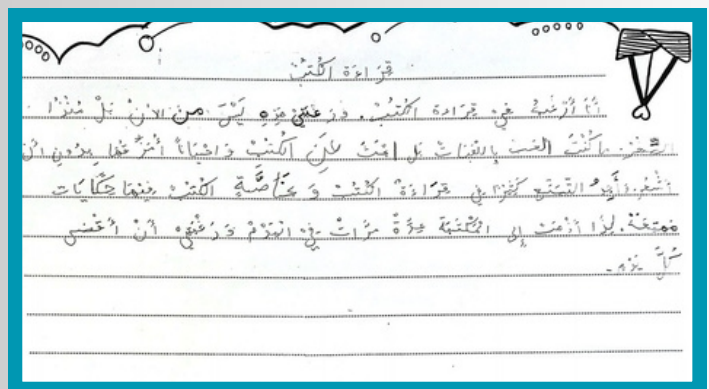 قِرَاءَة الكُتُبْ
أنَا أَرْغَبُ فِي قِرَاءَة الكُتُبْ. وَرَغْبَتِي هَذِهِ لَيْسَ مِنَ الآنْ بَلْ مُنْذُ
الصِّغَرْ. مَا كُنْتُ ألعب بِاللُّعْبَات بَل الكُتُبْ وَاحيَاناً أُمَزِّقُهَا بِدُونِ أن
أشْعُرْ. التمتع فِي قِرَاءَة الكُتُبْ وَ بِخَاصَّةٍ الكتب فِيهَا حِكَايَات
مُمتِعَة. لِذَا أذْهَبُ إِلى المَكْتَبَة عِدَّةَ مَرَّاتْ فِي اليَوْمْ وَرَغْبَتِي أنْ أقْضي
كُلَّ يَوْم.